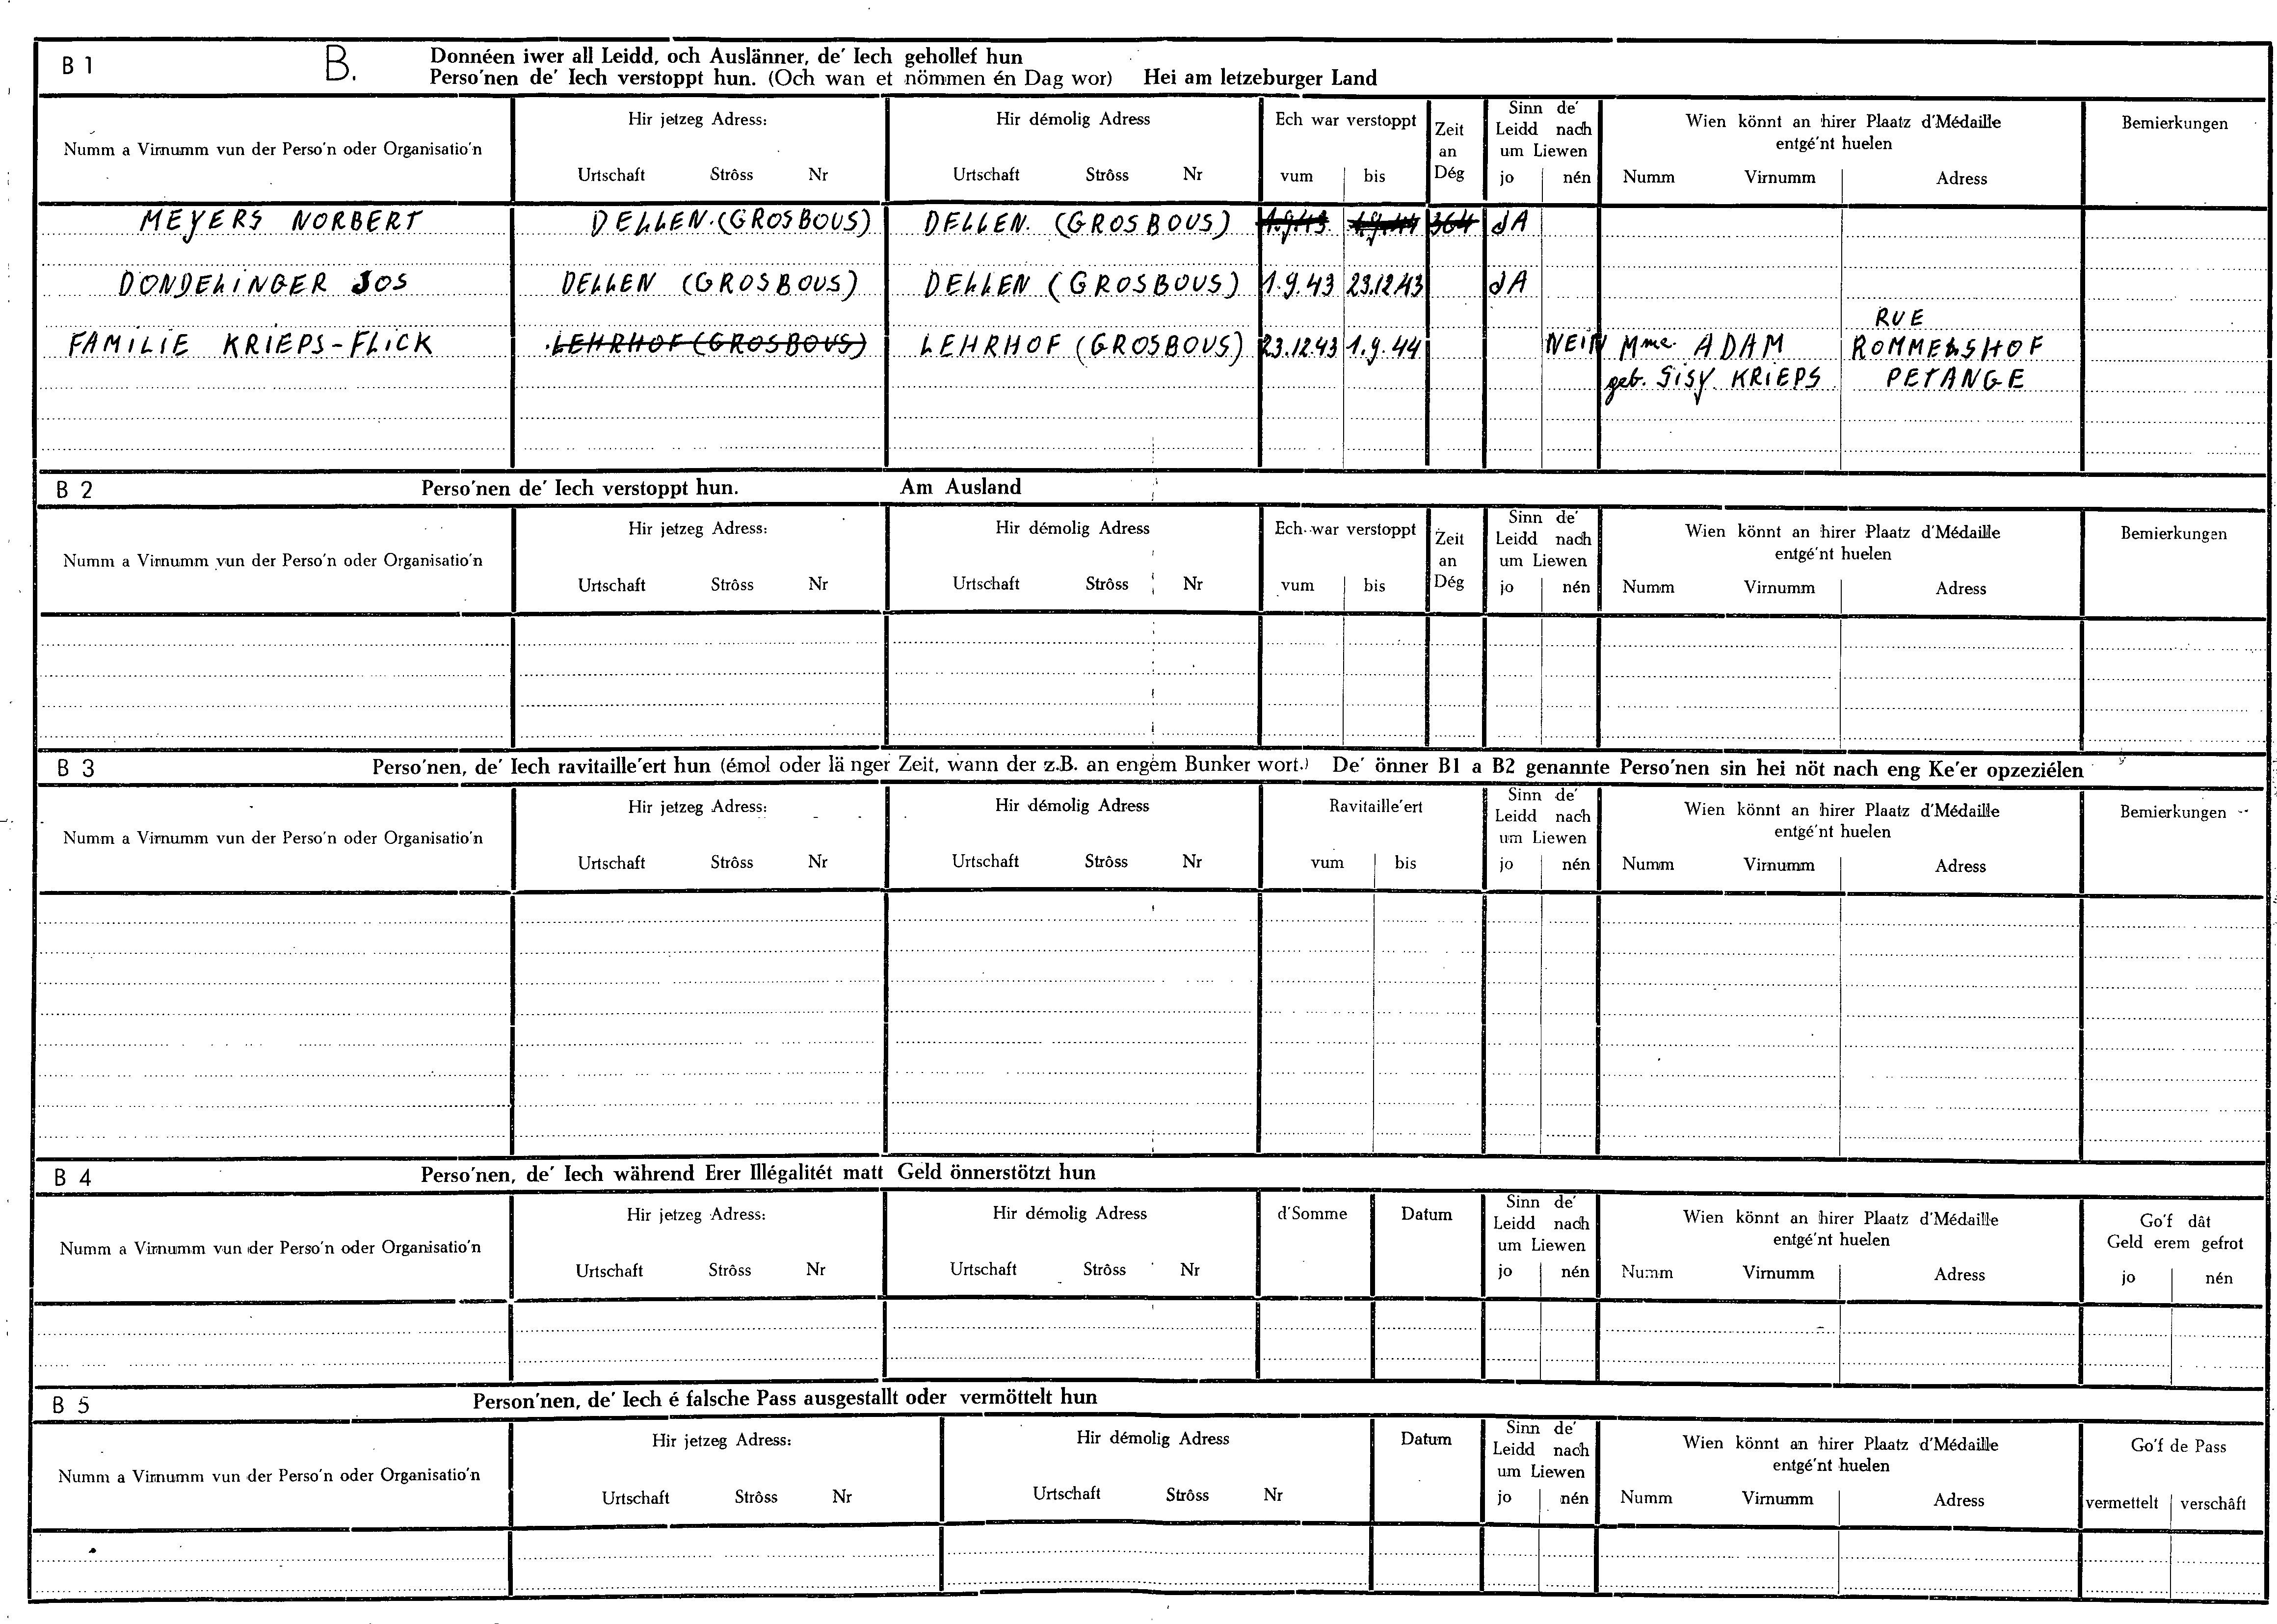 B 1
B.
Donnéen iwer all Leidd, och Auslänner, de' Iech gehollef hun
Perso'nen de' Iech verstoppt hun. (Och wan et nömmen én Dag wor) Hei am letzeburger Land
Numm a Virnumm vun der Perso'n oder Organisatio'n
Hir jetzeg Adress:
Urtschaft Strôss Nr
Hir démolig Adress
Urtschaft Strôss Nr
Ech war verstoppt
vum bis
Zeit
an
Dég
Sinn de'
Leidd nach
um Liewen
jo nén
Wien könnt an hirer Plaatz d'Médaille
entgé'nt huelen
Numm Virnumm Adress
Bemierkungen
MEYERS NORBERT DELLEN. (GROSBOUS) DELLEN. (GROSBOUS) 1.9.43 1.9.44 364 JA
DONDELINGER JOS DELLEN (GROSBOUS) DELLEN (GROSBOUS) 1.9.43 23.12.43 JA
RUE
FAMILIE KRIEPS-FLICK LEHRHOF (GROSBOUS) LEHRHOF (GROSBOUS) 23.12.43 1.9.44 NEIN Mme. ADAM ROMMELSHOF
geb. SISY KRIEPS PETANGE
B 2
Perso'nen de' Iech verstoppt hun. Am Ausland
Numm a Virnumm vun der Perso'n oder Organisatio'n
Hir jetzeg Adress:
Urtschaft Strôss Nr
Hir démolig Adress
Urtschaft Strôss Nr
Ech war verstoppt
vum bis
Zeit
an
Dég
Sinn de'
Leidd nach
um Liewen
jo nén
Wien könnt an hirer Plaatz d'Médaille
entgé'nt huelen
Numm Virnumm Adress
Bemierkungen
B 3
Perso'nen, de' Iech ravitaille'ert hun (émol oder länger Zeit, wann der z.B. an engem Bunker wort.) De' önner B1 a B2 genannte Perso'nen sin hei nöt nach eng Ke'er opzeziélen
Numm a Virnumm vun der Perso'n oder Organisatio'n
Hir jetzeg Adress:
Urtschaft Strôss Nr
Hir démolig Adress
Urtschaft Strôss Nr
Ravitaille'ert
vum bis
Sinn de'
Leidd nach
um Liewen
jo nén
Wien könnt an hirer Plaatz d'Médaille
entgé'nt huelen
Numm Virnumm Adress
Bemierkungen
B 4
Perso'nen, de' Iech während Erer Illégalitét matt Geld önnerstötzt hun
Numm a Virnumm vun der Perso'n oder Organisatio'n
Hir jetzeg Adress:
Urtschaft Strôss Nr
Hir démolig Adress
Urtschaft Strôss Nr
d'Somme
Datum
Sinn de'
Leidd nach
um Liewen
jo nén
Wien könnt an hirer Plaatz d'Médaille
entgé'nt huelen
Numm Virnumm Adress
Go'f dât
Geld erem gefrot
jo nén
B 5
Person'nen, de' Iech é falsche Pass ausgestallt oder vermöttelt hun
Numm a Virnumm vun der Perso'n oder Organisatio'n
Hir jetzeg Adress:
Urtschaft Strôss Nr
Hir démolig Adress
Urtschaft Strôss Nr
Datum
Sinn de'
Leidd nach
um Liewen
jo nén
Wien könnt an hirer Plaatz d'Médaille
entgé'nt huelen
Numm Virnumm Adress
Go'f de Pass
vermettelt verschâft